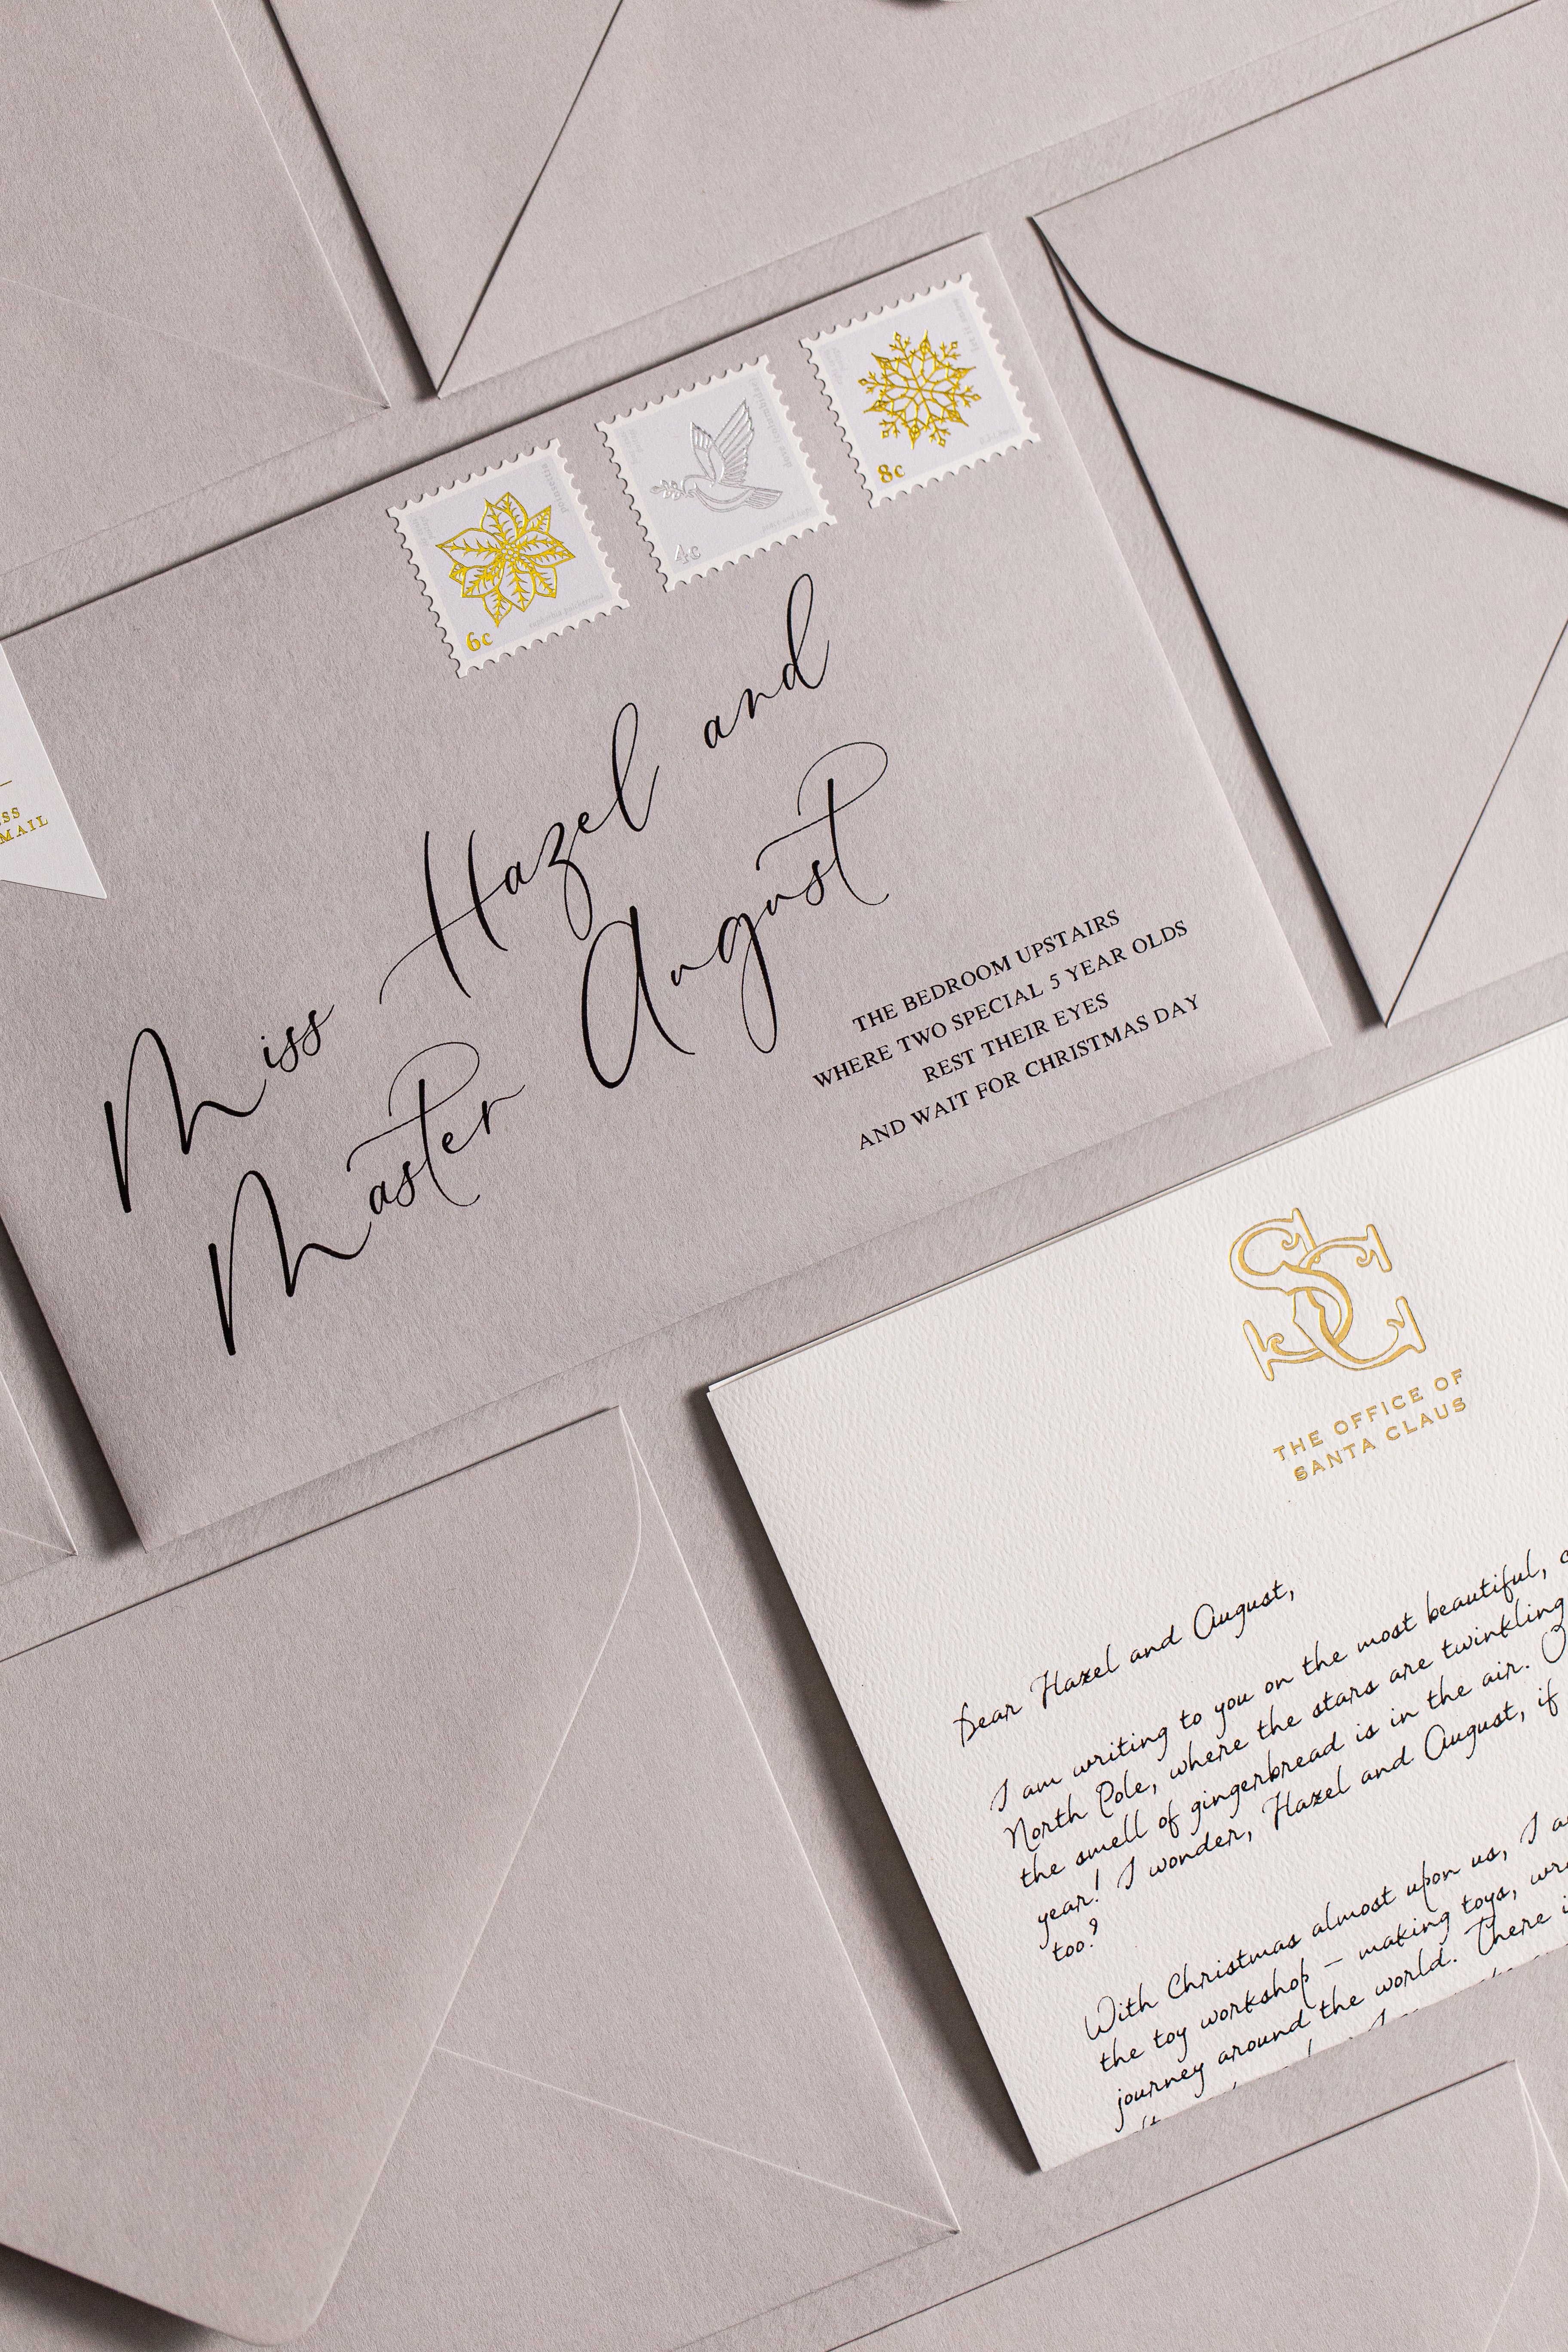 6c
4c
8c
poinsettia
MAIL
Miss Hazel and
Master August
THE BEDROOM UPSTAIRS
WHERE TWO SPECIAL 5 YEAR OLDS
REST THEIR EYES
AND WAIT FOR CHRISTMAS DAY
SC
THE OFFICE OF
SANTA CLAUS
Dear Hazel and August,
I am writing to you on the most beautiful,
North Pole, where the stars are twinkling
the smell of gingerbread is in the air.
year! I wonder, Hazel and August, if
too?
With Christmas almost upon us, I
the toy workshop – making toys,
journey around the world. There